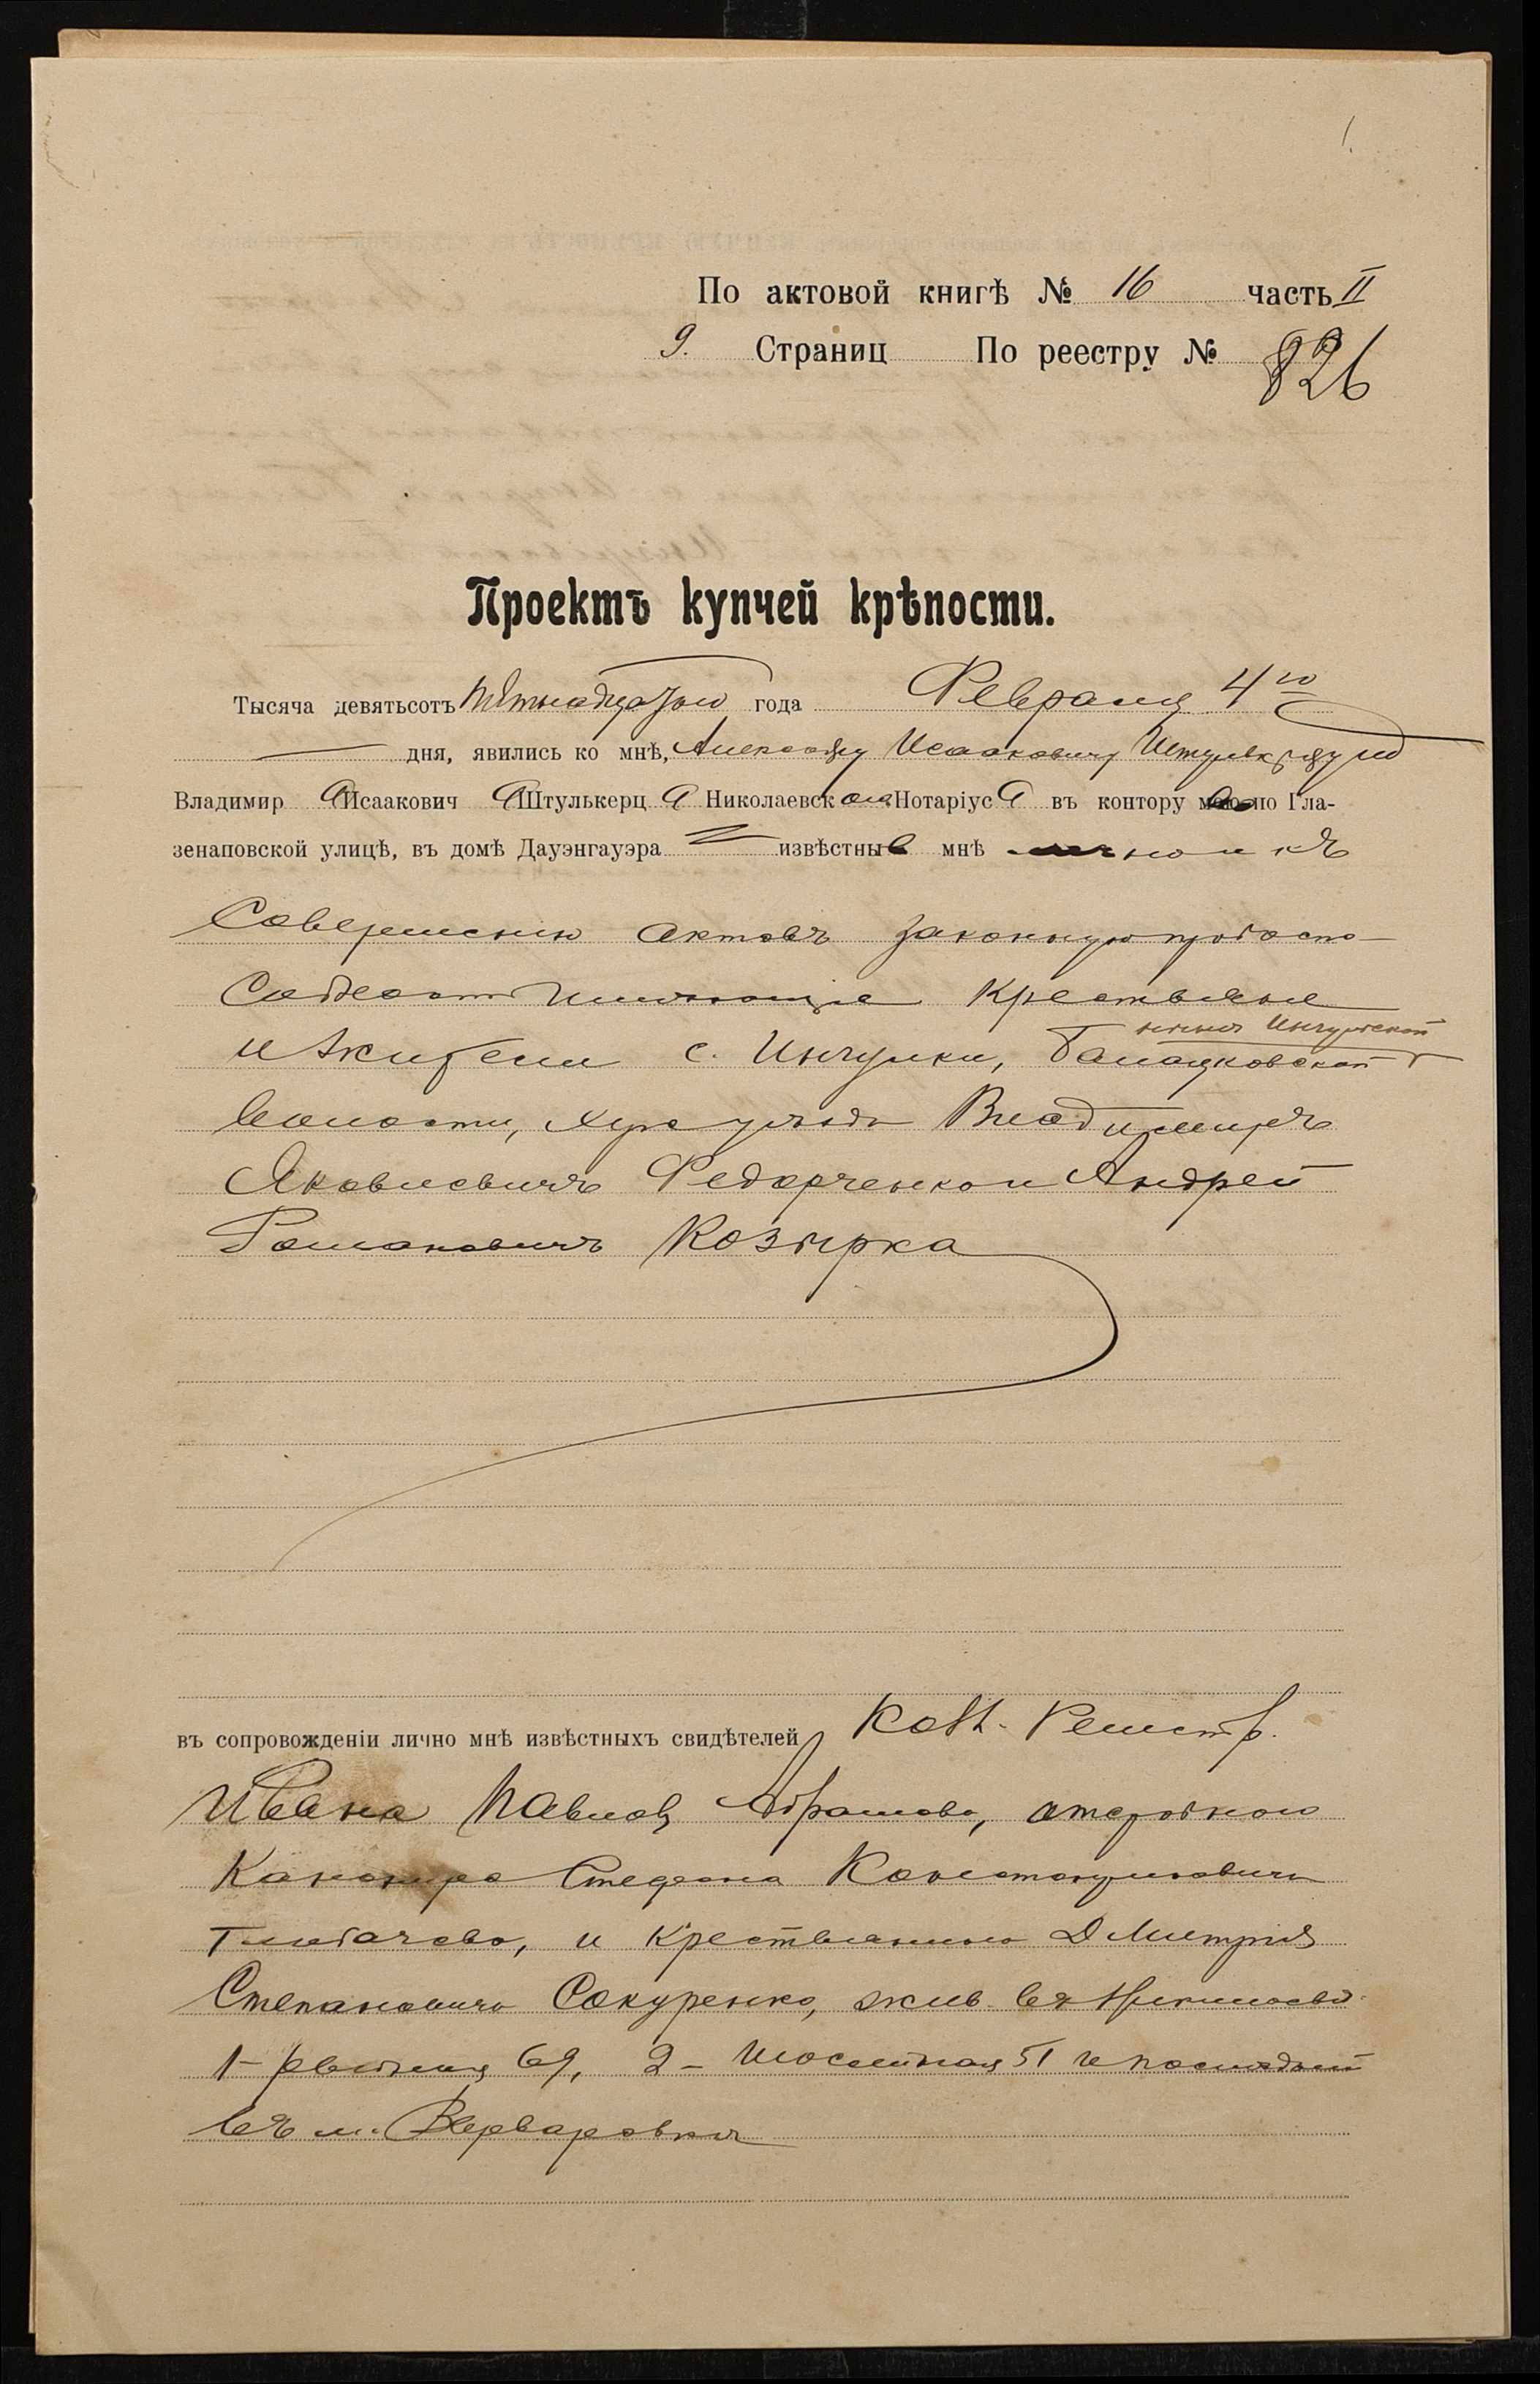 1.
По актовой книгѣ № 16 часть II
9. Страниц По реестру № 826
Проектъ купчей крѣпости.
Тысяча девятьсотъ пятнадцатаго года Февраля 4го
дня, явились ко мнѣ, Александру Исааковичу Штулькерцу
Владимира Исааковича Штулькерца Николаевскаго Нотаріуса въ контору его по Гла-
зенаповской улицѣ, въ домѣ Дауэнгауэра извѣстные мнѣ и къ
Совершенію актовъ законную правоспо-
собность имѣющіе крестьяне
нынѣ Ингульской
и жители с. Ингулки, Балацковской
волости, Хер. уѣзда Владимиръ
Яковлевичъ Федорченко и Андрей
Романовичъ Козырка
въ сопровожденіи лично мнѣ извѣстныхъ свидѣтелей Колл. Регистр.
Ивана Павлов Абрамова, отставного
Канонира Стефана Константиновича
и крестьянина Дмитрія
Степановича Сокуренко, жив. въ Николаевѣ
1- Рыбная 69, 2- Шоссейная 51 и послѣдній
въ м. Варваровкѣ